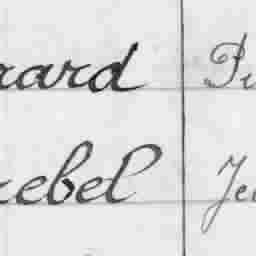 rard Pi
rebel Je